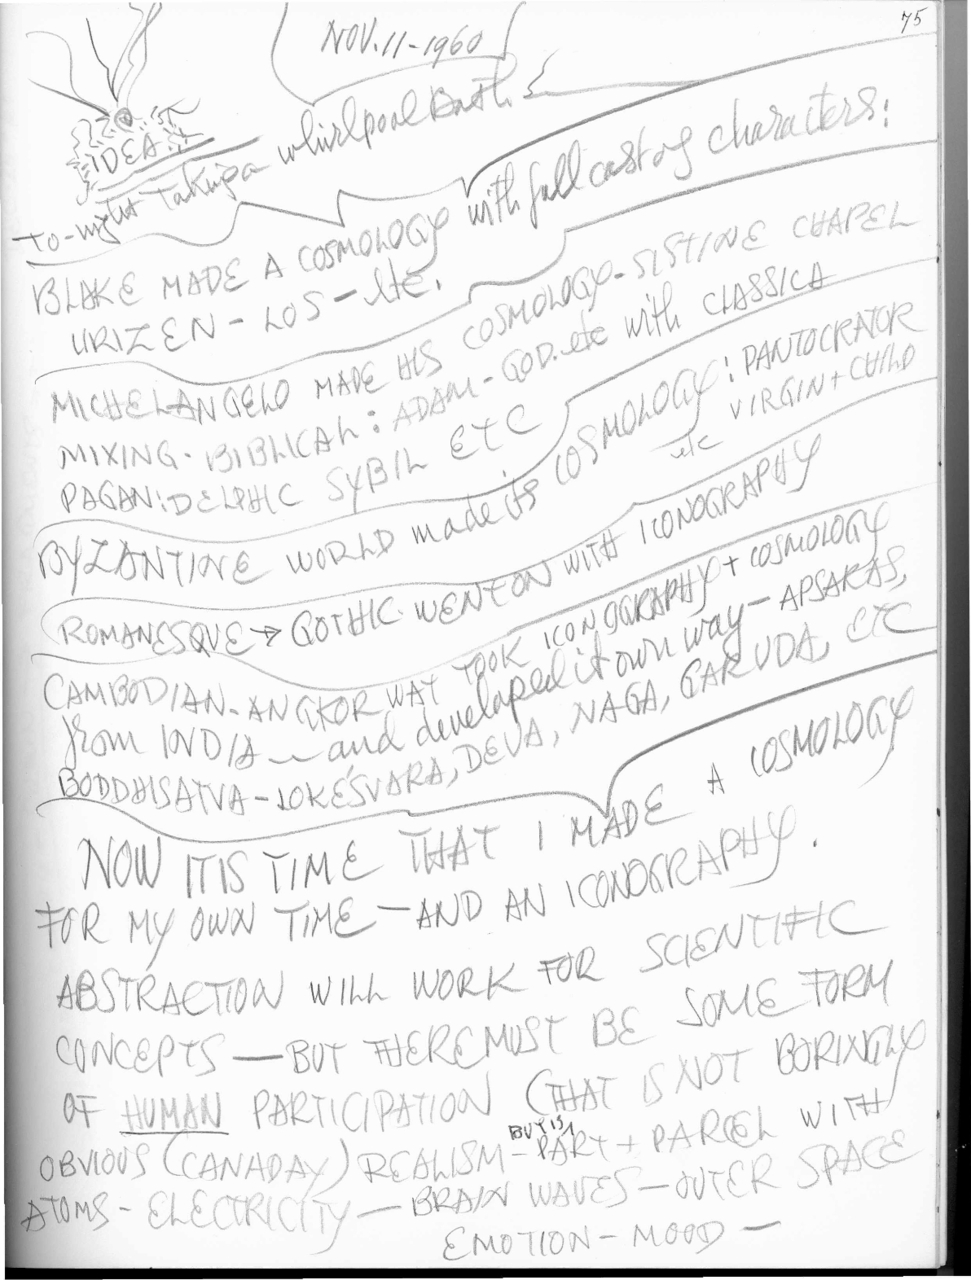 75
NOV. 11 - 1960
IDEA:
To-night taking a whirlpool Bath:
BLAKE MADE A COSMOLOGY with full cast of characters:
URIZEN - LOS - etc.
MICHELANGELO MADE HIS COSMOLOGY - SISTINE CHAPEL
MIXING - BIBLICAL: ADAM - GOD. etc with CLASSICA
PAGAN: DELPHIC SYBIL ETC
BYZANTINE WORLD made its COSMOLOGY: PANTOCRATOR
etc VIRGIN + CHILD
ROMANESQUE → GOTHIC WENT ON WITH ICONOGRAPHY
CAMBODIAN - ANGKOR WAT TOOK ICONOGRAPHY + COSMOLOGY
from INDIA - and developed it own way - APSARAS,
BODDHISATVA - LOKÉSVARA, DEVA, NAGA, GARUDA, ETC
NOW IT IS TIME THAT I MADE A COSMOLOGY
FOR MY OWN TIME - AND AN ICONOGRAPHY.
ABSTRACTION WILL WORK FOR SCIENTIFIC
CONCEPTS - BUT THERE MUST BE SOME FORM
OF HUMAN PARTICIPATION (THAT IS NOT BORINGLY
OBVIOUS (CANADAY) REALISM - BUT IS PART + PARCEL WITH
ATOMS - ELECTRICITY - BRAIN WAVES - OUTER SPACE
EMOTION - MOOD -